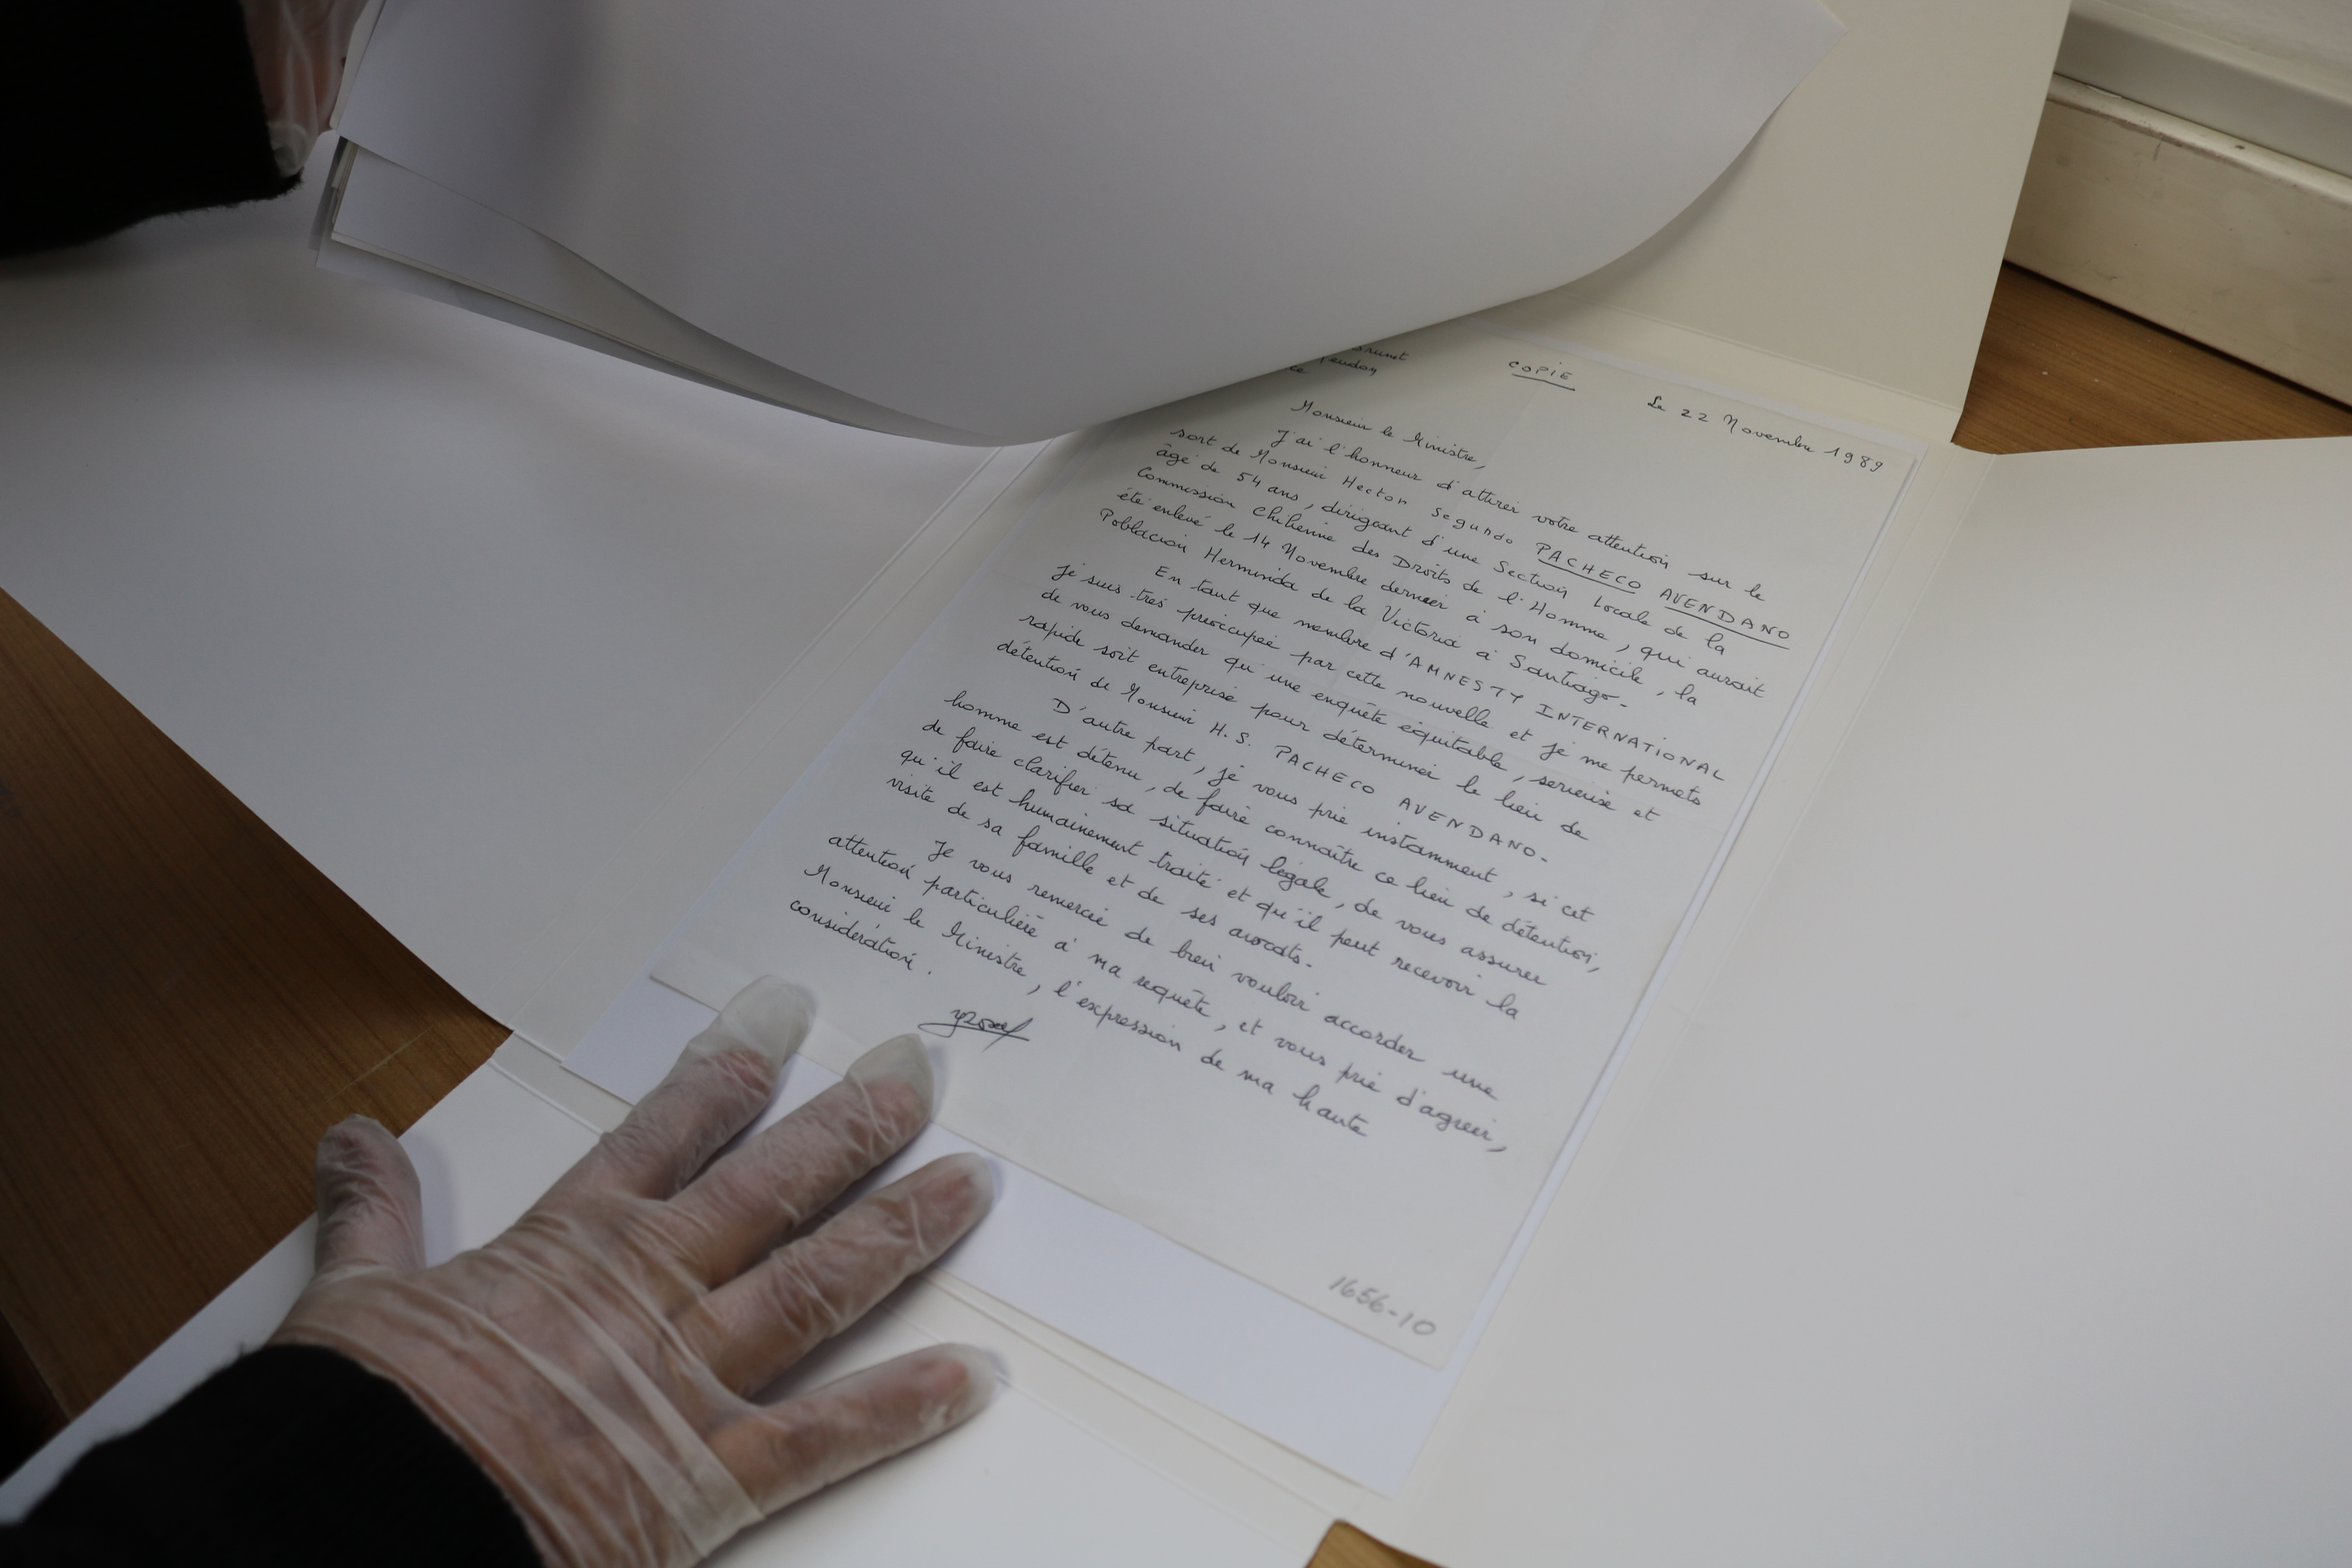 COPIE
Le 22 Novembre 1989
Monsieur le Ministre,
J'ai l'honneur d'attirer votre attention sur le
sort de Monsieur Hector Segundo PACHECO AVENDANO
âgé de 54 ans, dirigeant d'une Section Locale de la
Commission Chilienne des Droits de l'Homme, qui aurait
été enlevé le 14 Novembre dernier à son domicile, la
Poblacion Herminda de la Victoria à Santiago.
En tant que membre d'AMNESTY INTERNATIONAL
je suis très préoccupée par cette nouvelle et je me permets
de vous demander qu'une enquête équitable, sérieuse et
rapide soit entreprise pour déterminer le lieu de
détention de Monsieur H.S. PACHECO AVENDANO.
D'autre part, je vous prie instamment, si cet
homme est détenu, de faire connaître ce lieu de détention,
de faire clarifier sa situation légale, de vous assurer
qu'il est humainement traité et qu'il peut recevoir la
visite de sa famille et de ses avocats.
Je vous remercie de bien vouloir accorder une
attention particulière à ma requête, et vous prie d'agréer,
Monsieur le Ministre, l'expression de ma haute
considération.
1656-10